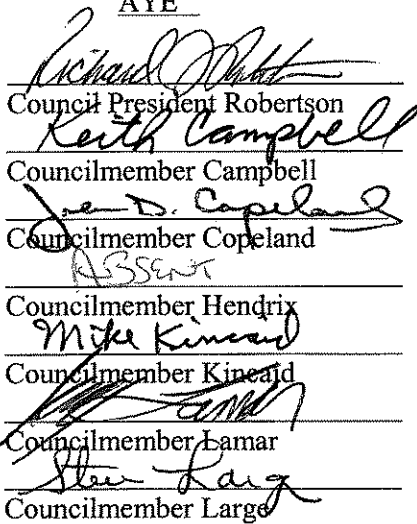 AYE
Richard
Council President Robertson
Keith Campbell
Councilmember Campbell
D. Copeland
Councilmember Copeland
ABSENT
Councilmember Hendrix
Mike Kincaid
Councilmember Kincaid
Lamar
Councilmember Lamar
Steve Large
Councilmember Large